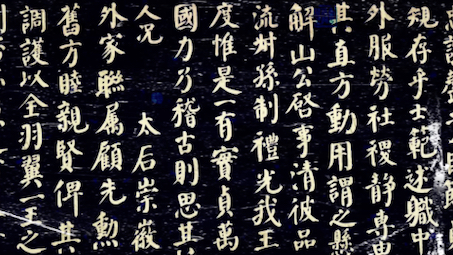 規存乎士範述職中
外服勞社稷静專由
其直方動用謂之懸
解山公啓事清彼品
流叔孫制禮光我王
度惟是一有實貞萬
國力乃稽古則思其
人况 太后崇徽
外家聯属顧先勲
舊方睦親賢俾其
調護以全羽翼一王之